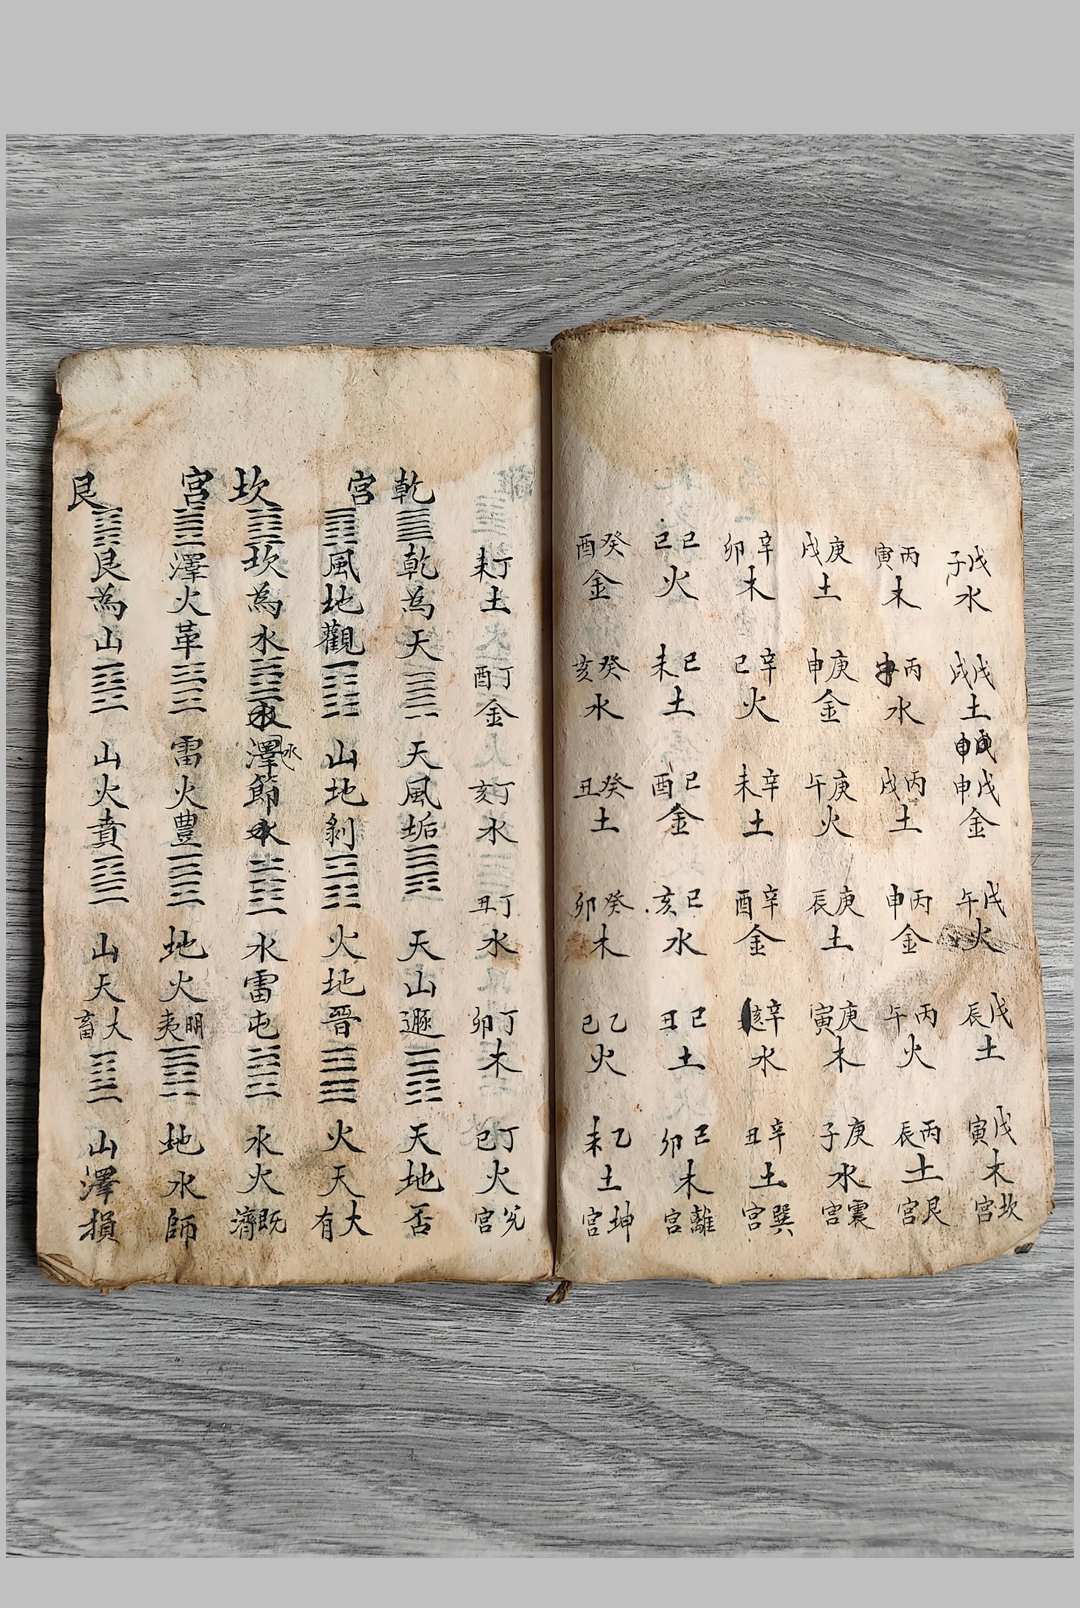 戊子水 戊戌土 戊申金 戊午火 戊辰土 戊寅木 坎宮
丙寅木 丙水 丙戌土 丙申金 丙午火 丙辰土 艮宮
庚戌土 庚申金 庚午火 庚辰土 庚寅木 庚子水 震宮
辛卯木 辛巳火 辛未土 辛酉金 辛亥水 辛丑土 巽宮
己巳火 己未土 己酉金 己亥水 己丑土 己卯木 離宮
癸酉金 癸亥水 癸丑土 癸卯木 乙巳火 乙未土 坤宮
丁未土 丁酉金 丁亥水 丁丑水 丁卯木 丁巳火 兌宮
乾 乾為天 天風垢 天山遯 天地否
宮 風地觀 山地剝 火地晉 火天大有
坎 坎為水 水澤節 水雷屯 水火既濟
宮 澤火革 雷火豊 地火明夷 地水師
艮 艮為山 山火賁 山天大畜 山澤損